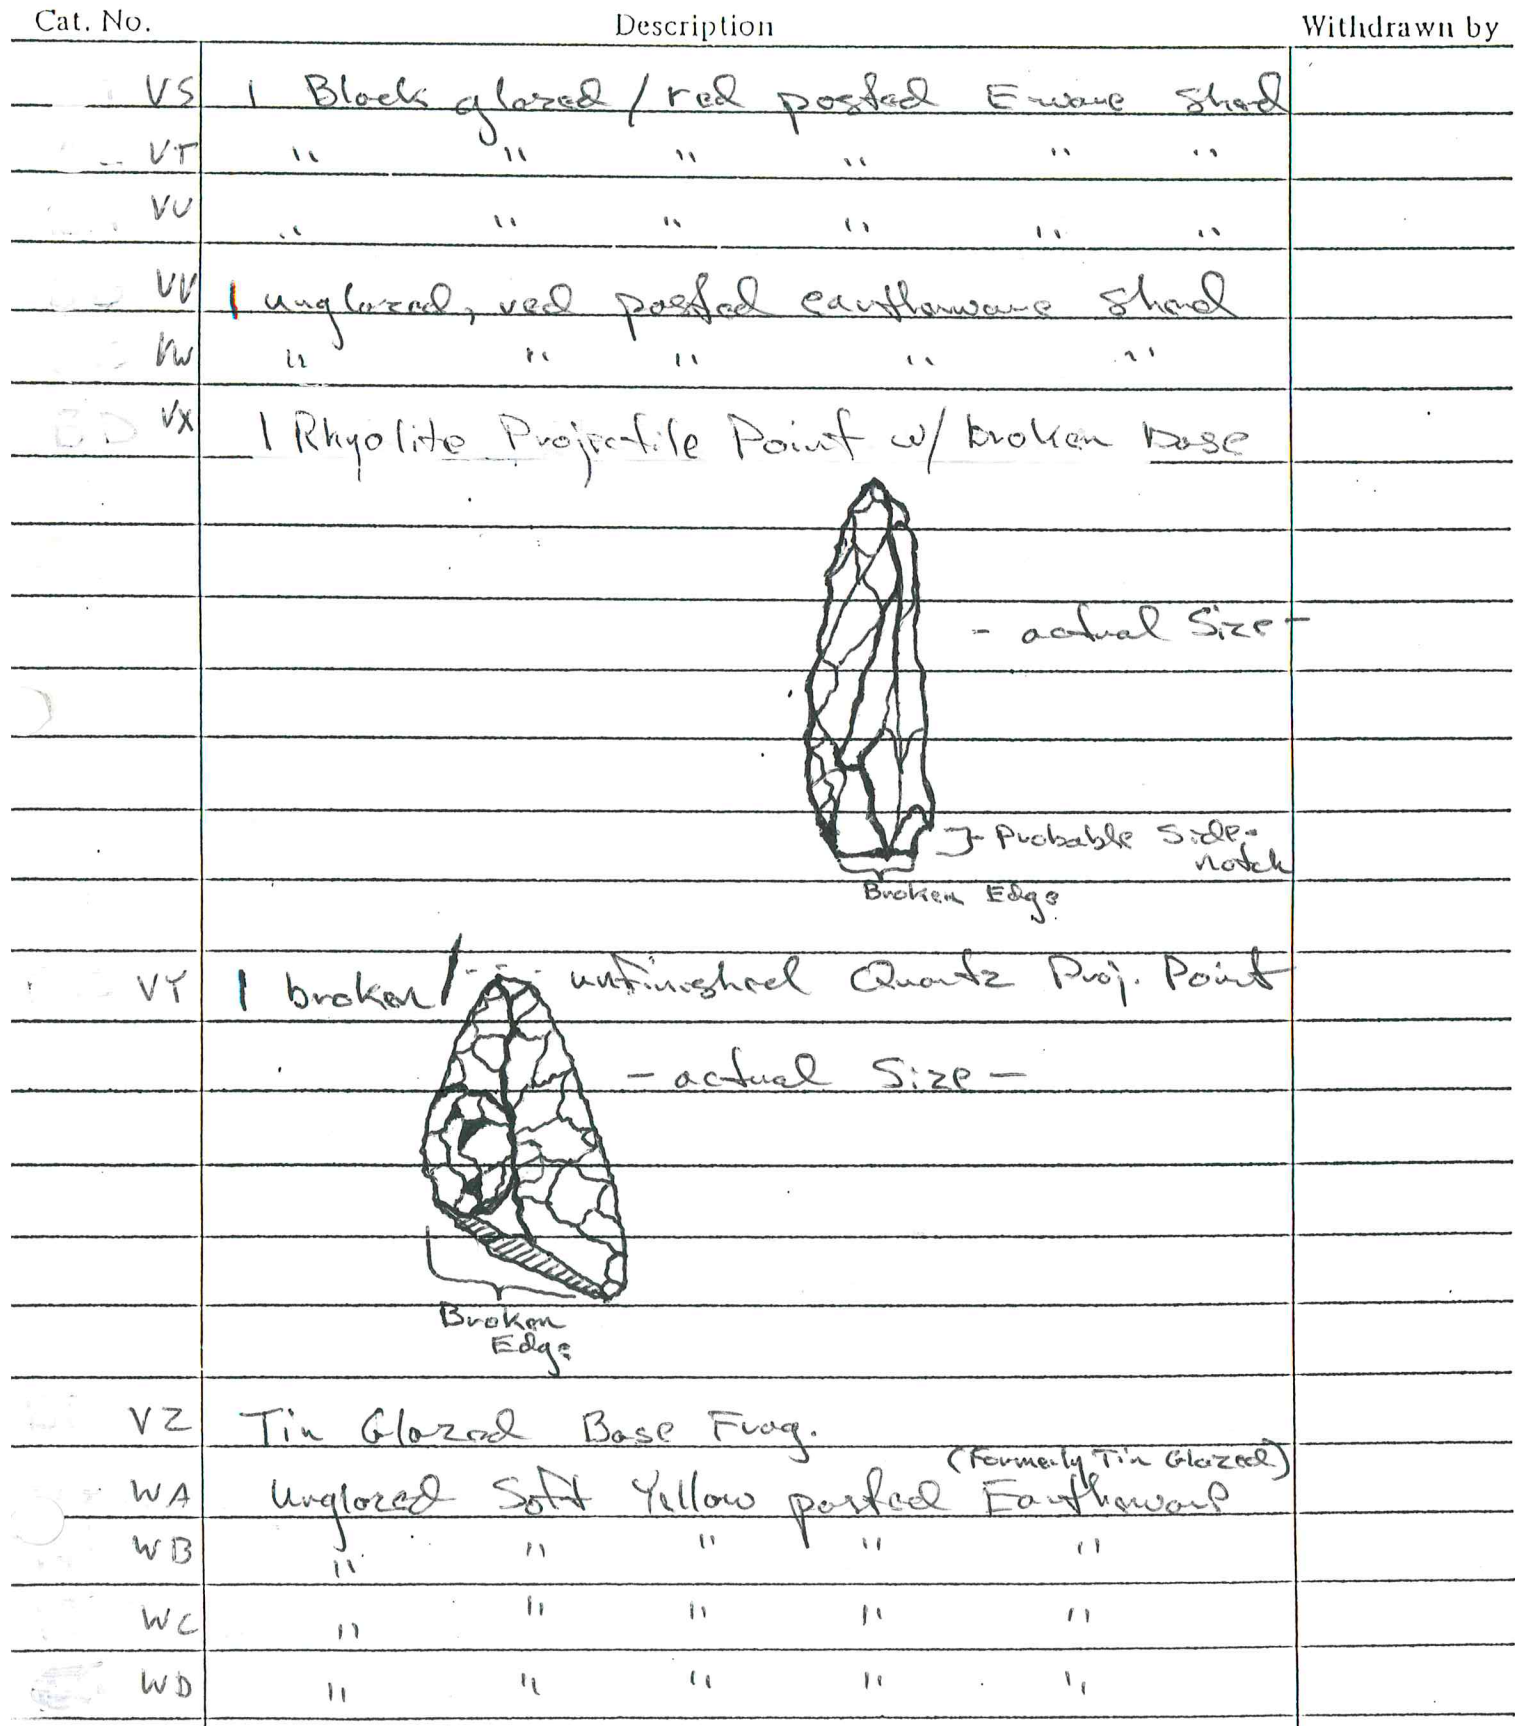 Cat. No. Description Withdrawn by
VS 1 Black glazed / red pasted E-ware Sherd
VT " " " " " "
VU " " " " " "
VV 1 unglazed, red pasted earthenware Sherd
VW " " " " "
VX 1 Rhyolite Projectile Point w/ broken base
- actual Size -
}- Probable Side-
notch
Broken Edge
VY 1 broken / unfinished Quartz Proj. Point
- actual Size -
Broken
Edge
VZ Tin Glazed Base Frag.
(Formerly Tin Glazed)
WA Unglazed Soft Yellow pasted Earthenware
WB " " " " "
WC " " " " "
WD " " " " "